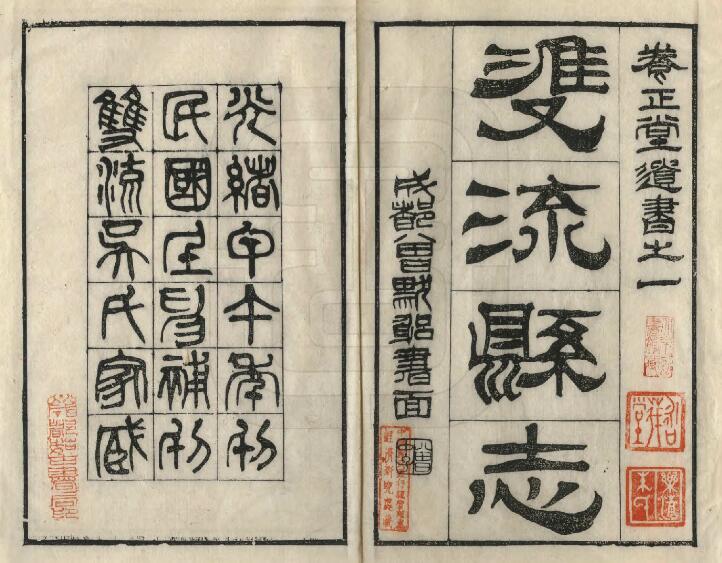 養正堂遺書之一
雙流縣志
成都曾默躬書面
光緒甲午秊刊
民國壬申補刊
雙流吳氏家藏